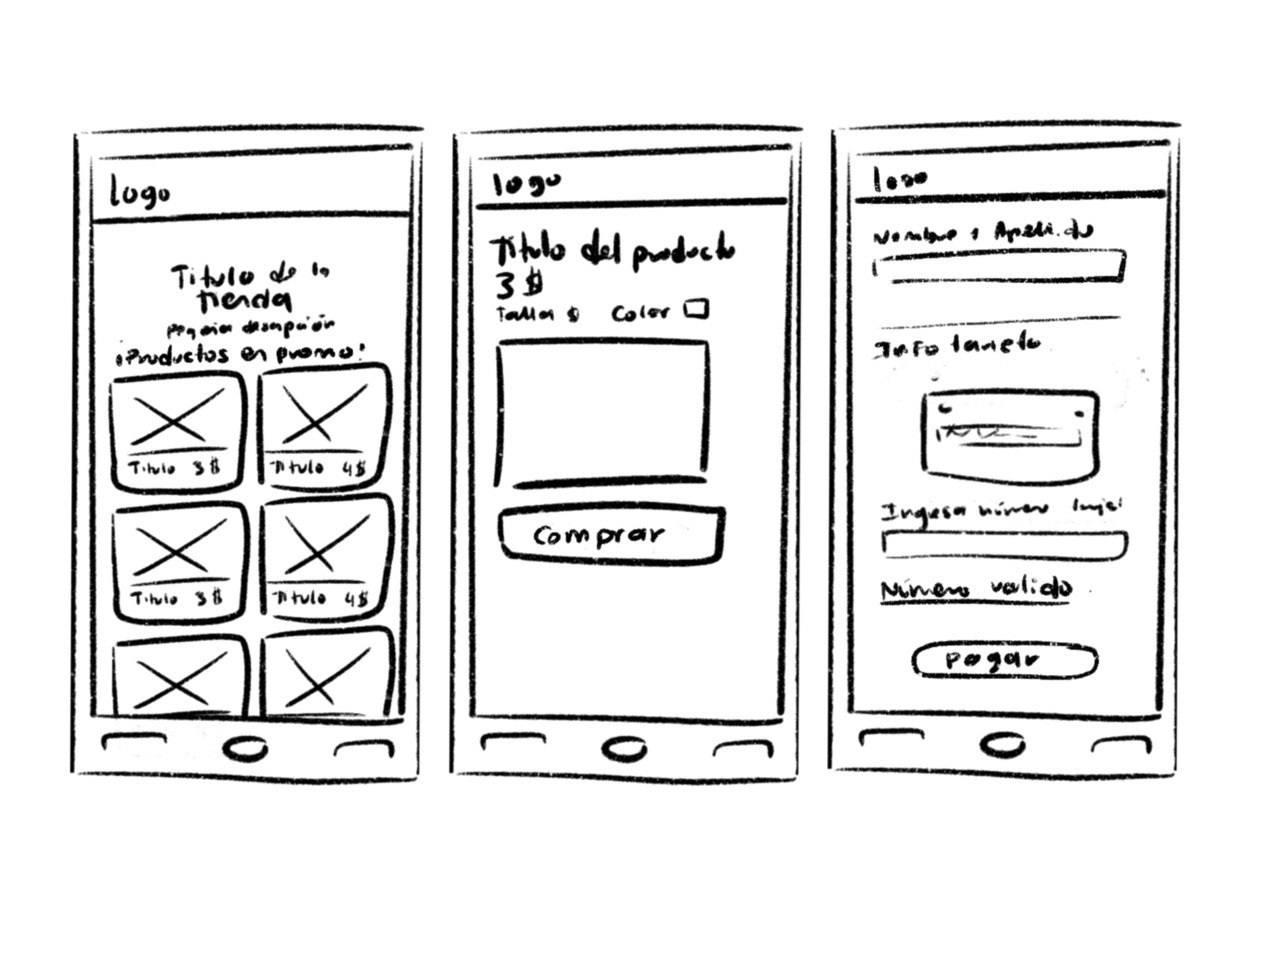 logo
Titulo de la
tienda
pequeña descripción
¡Productos en promo!
Titulo 3$
Titulo 4$
Titulo 3$
Titulo 4$
logo
Titulo del producto
3$
Talla
Color
Comprar
logo
Nombre y Apellido
Info tarjeta
Ingresa número
Número valido
pagar